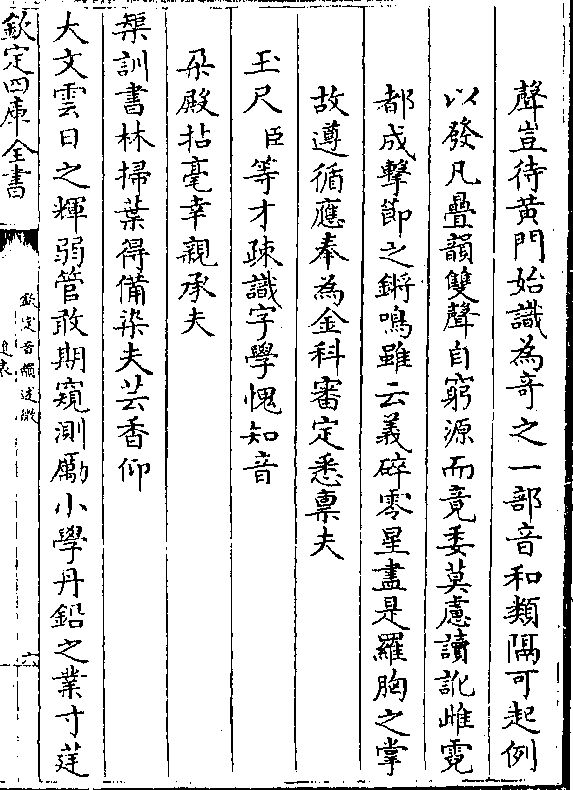 聲豈待黄門始識為奇之一部音和類隔可起例
以發凡疊韻雙聲自窮源而竟委莫慮讀訛雌霓
都成擊節之鏘鳴雖云義碎零星盡是羅胸之掌
故遵循應奉為金科審定悉禀夫
玉尺臣等才疎識字學愧知音
朶殿拈毫幸親承夫
榘訓書林掃葉得備染夫芸香仰
大文雲日之輝弱管敢期窺測勵小學丹鉛之業寸莛
欽定四庫全書
欽定音韻述微
進表
六